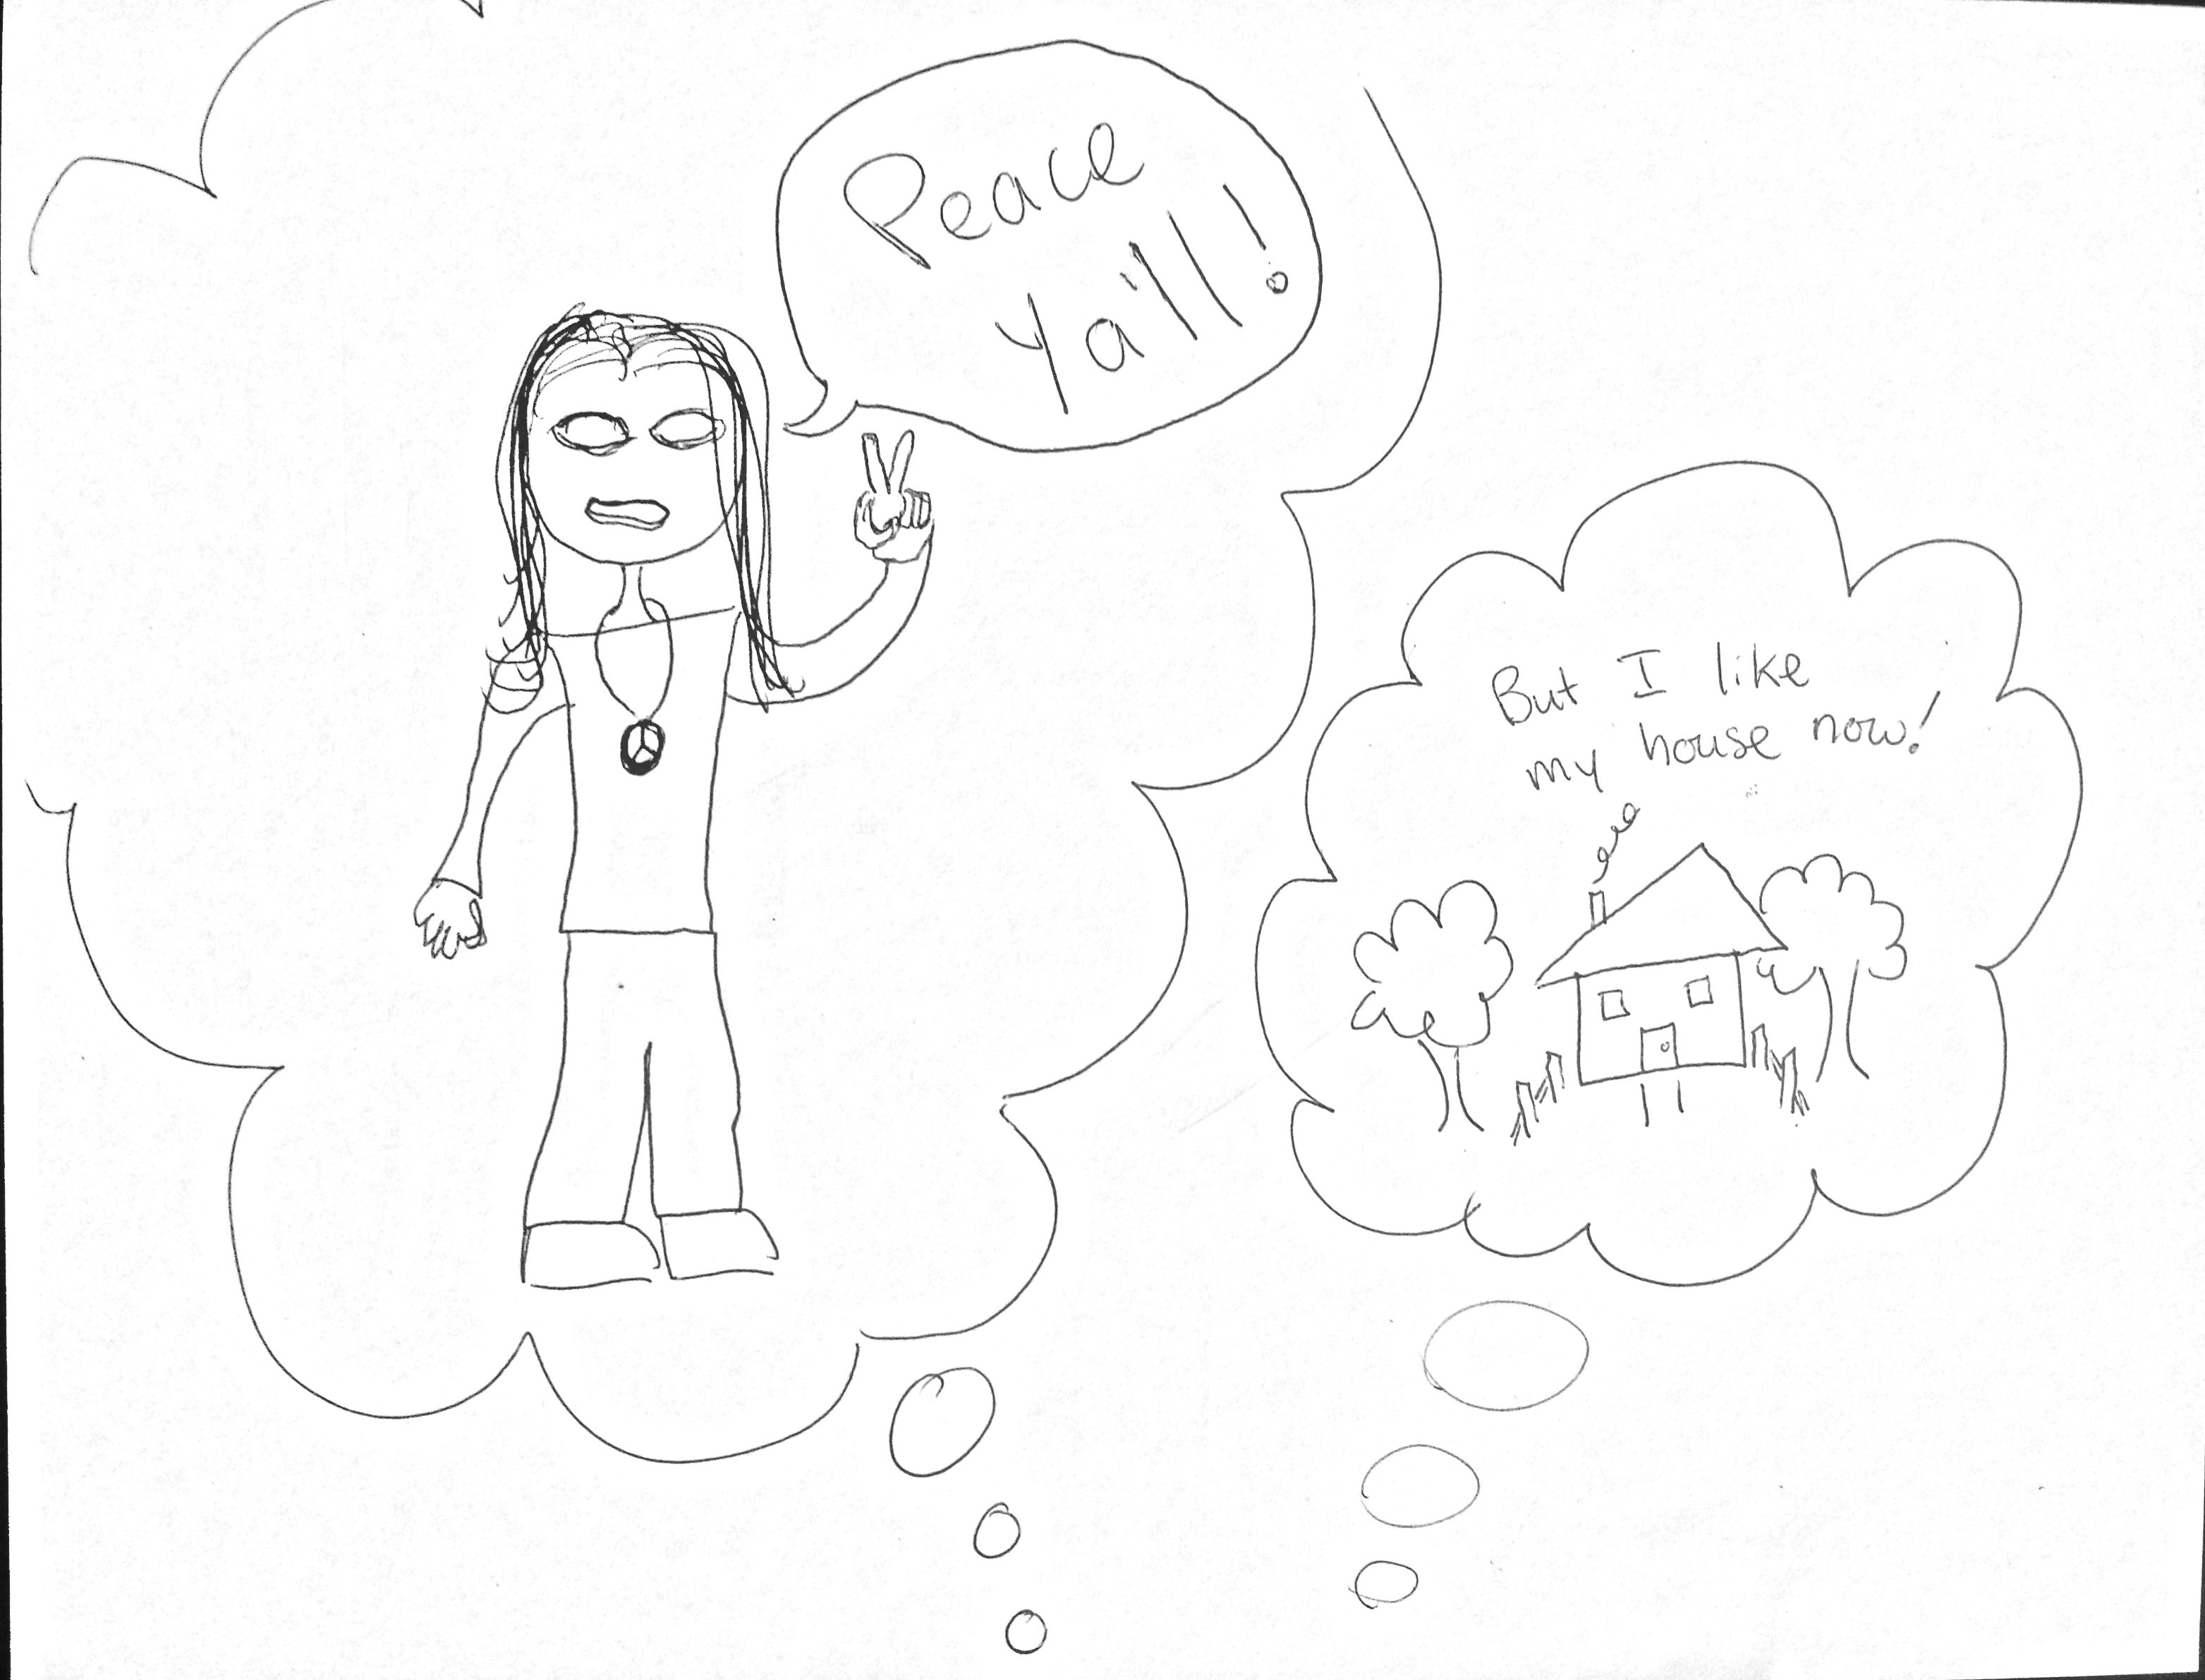 Peace
Ya'll!
But I like
my house now!